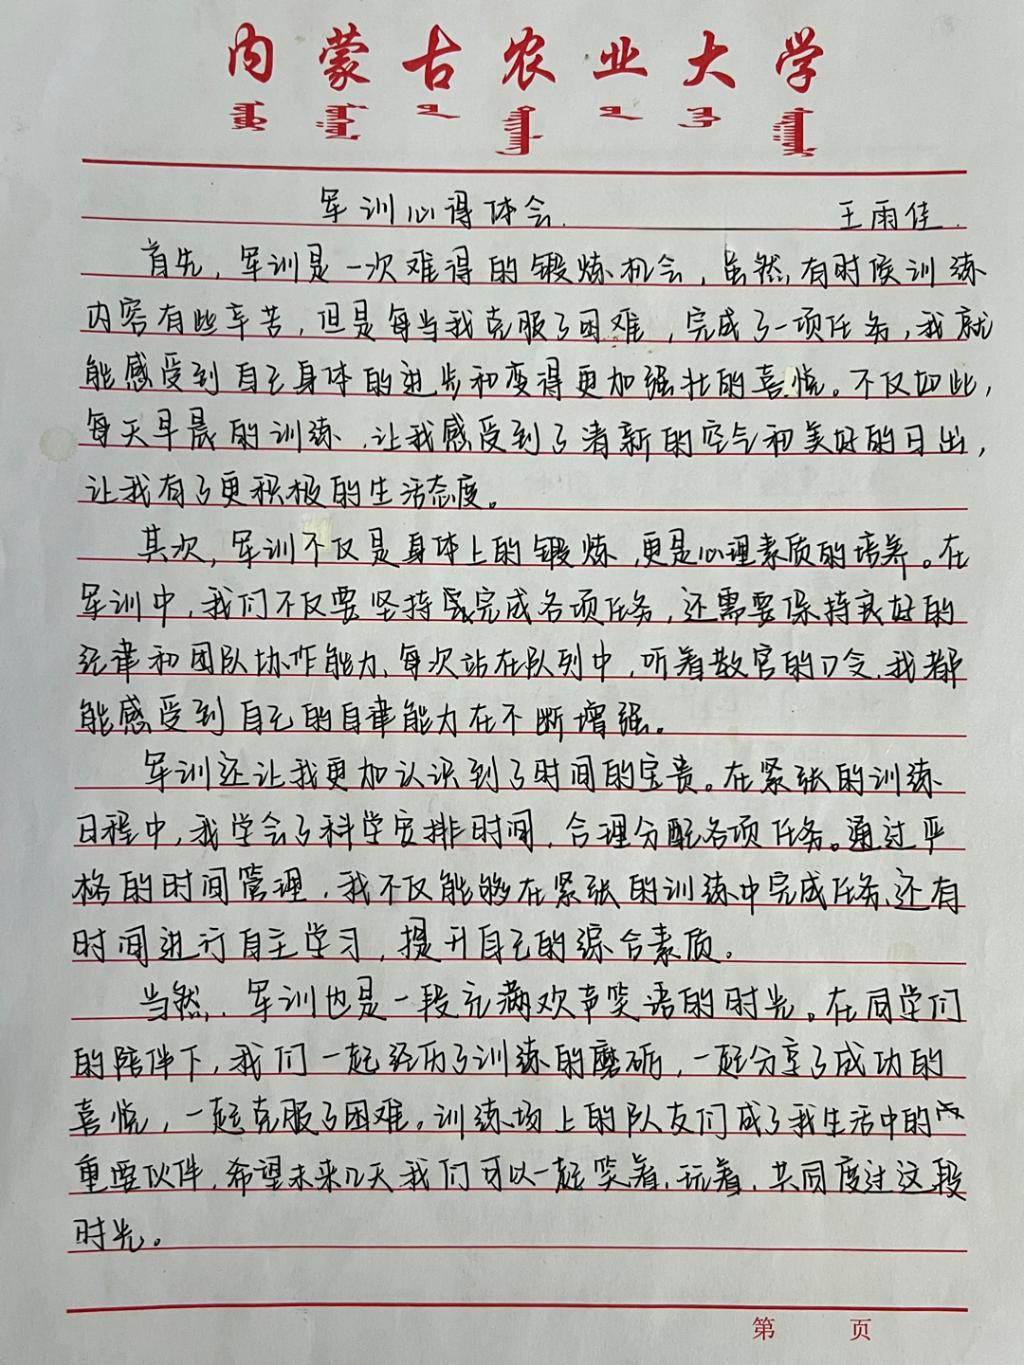 内蒙古农业大学
军训心得体会.
王雨佳.
首先，军训是一次难得的锻炼机会，虽然，有时候训练
内容有些辛苦，但是每当我克服了困难，完成了一项任务，我就
能感受到自己身体的进步和变得更加强壮的喜悦。不仅如此，
每天早晨的训练，让我感受到了清新的空气和美好的日出，
让我有了更积极的生活态度。
其次，军训不仅是身体上的锻炼，更是心理素质的培养。在
军训中，我们不仅要坚持完成各项任务，还需要保持良好的
纪律和团队协作能力、每次站在队列中，听着教官的口令，我都
能感受到自己的自律能力在不断增强。
军训还让我更加认识到了时间的宝贵。在紧张的训练
日程中，我学会了科学安排时间，合理分配各项任务。通过严
格的时间管理，我不仅能够在紧张的训练中完成任务，还有
时间进行自主学习，提升自己的综合素质。
当然，军训也是一段充满欢声笑语的时光。在同学们
的陪伴下，我们一起经历了训练的磨砺，一起分享了成功的
喜悦，一起克服了困难。训练场上的队友们成了我生活中的
重要伙伴，希望未来几天我们可以一起笑着，玩着，共同度过这段
时光。
第 页